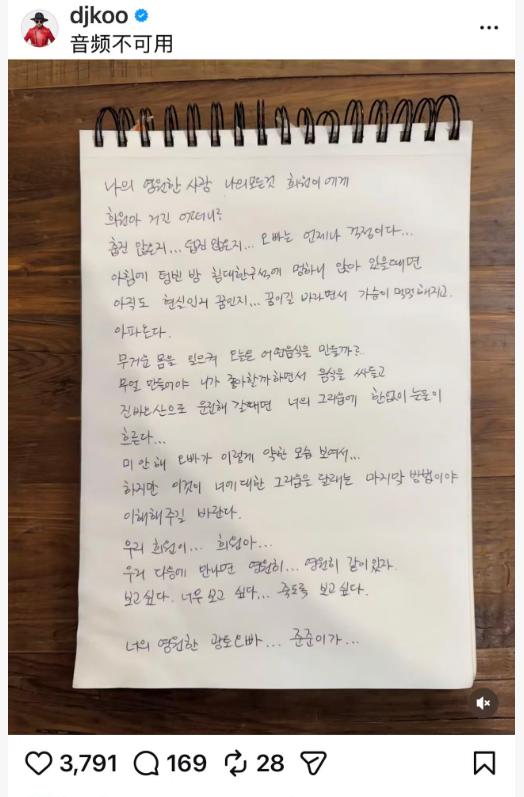 djkoo
音频不可用
나의 영원한 사랑 나의모든것 희원이에게
희원아 거긴 어떠니?
춥진 않은지... 덥진 않은지... 오빠는 언제나 걱정이다...
아침에 텅빈 방 침대한구석에 멍하니 앉아 있을때면
아직도 현실인지 꿈인지... 꿈이길 바라면서 가슴이 먹먹해지고.
아파온다.
무거운 몸을 일으켜 오늘은 어떤음식을 만들까?
무얼 만들어야 니가 좋아할까하면서 음식을 싸들고
진바오산으로 운전해 갈때면 너의 그리움에 한없이 눈물이
흐른다...
미안해 오빠가 이렇게 약한 모습 보여서...
하지만 이것이 너에대한 그리움을 달래는 마지막 방법이야
이해해주길 바란다.
우리 희원이... 희원아...
우리 다음에 만나면 영원히... 영원히 같이있자.
보고싶다. 너무 보고 싶다... 죽도록 보고싶다.
너의 영원한 광토오빠... 준준이가...
3,791 169 28